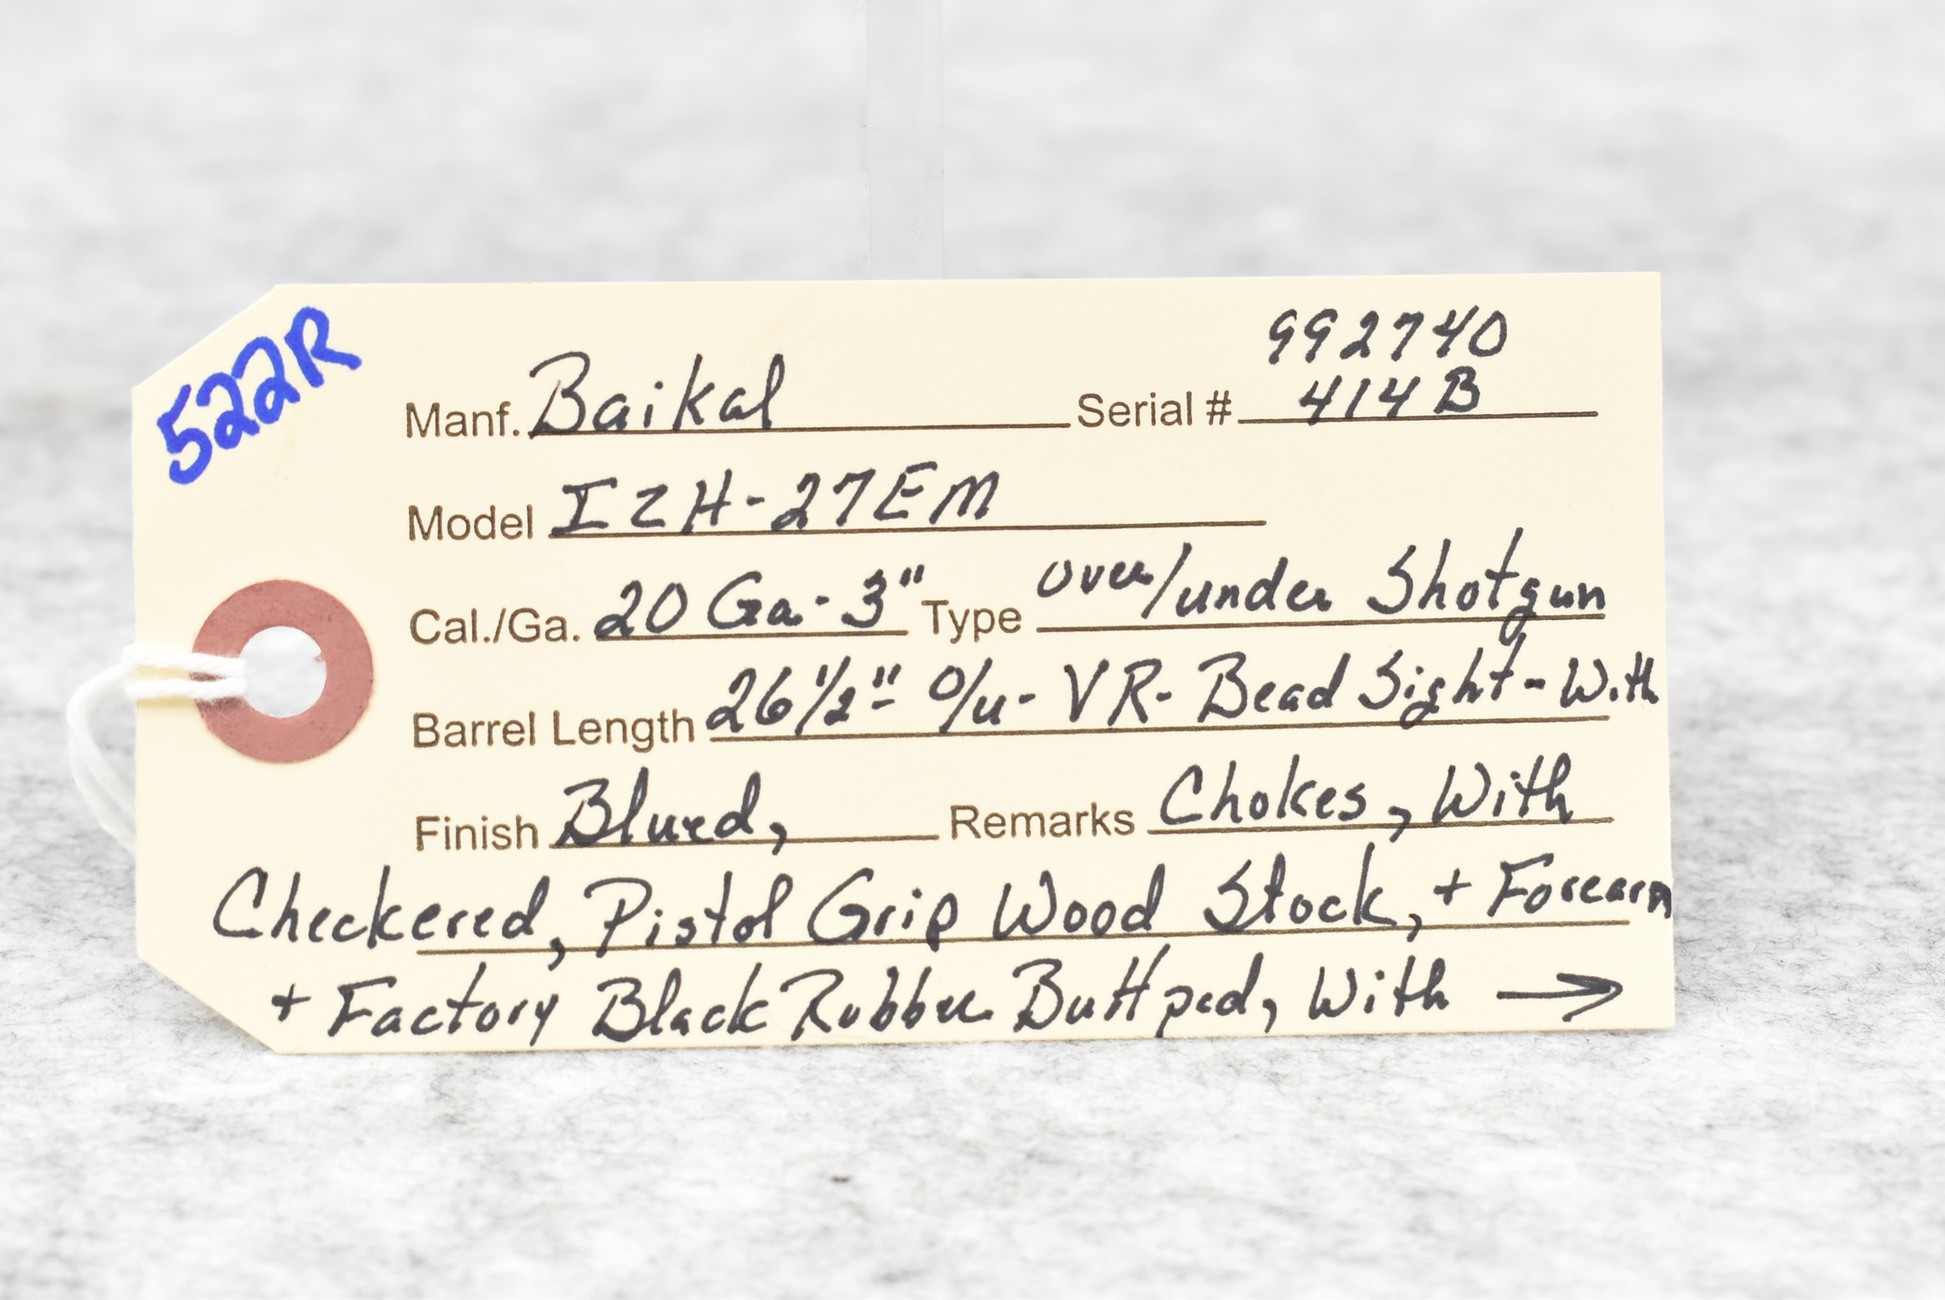 522R
992740
Manf. Baikal Serial # 414B
Model IZH-27EM
Cal./Ga. 20 Ga-3" Type over/under Shotgun
Barrel Length 26 1/2"- O/u- VR- Bead Sight - With
Finish Blued, Remarks Chokes, With
Checkered, Pistol Grip Wood Stock, + Forearm
+ Factory Black Rubber Buttpad, With →